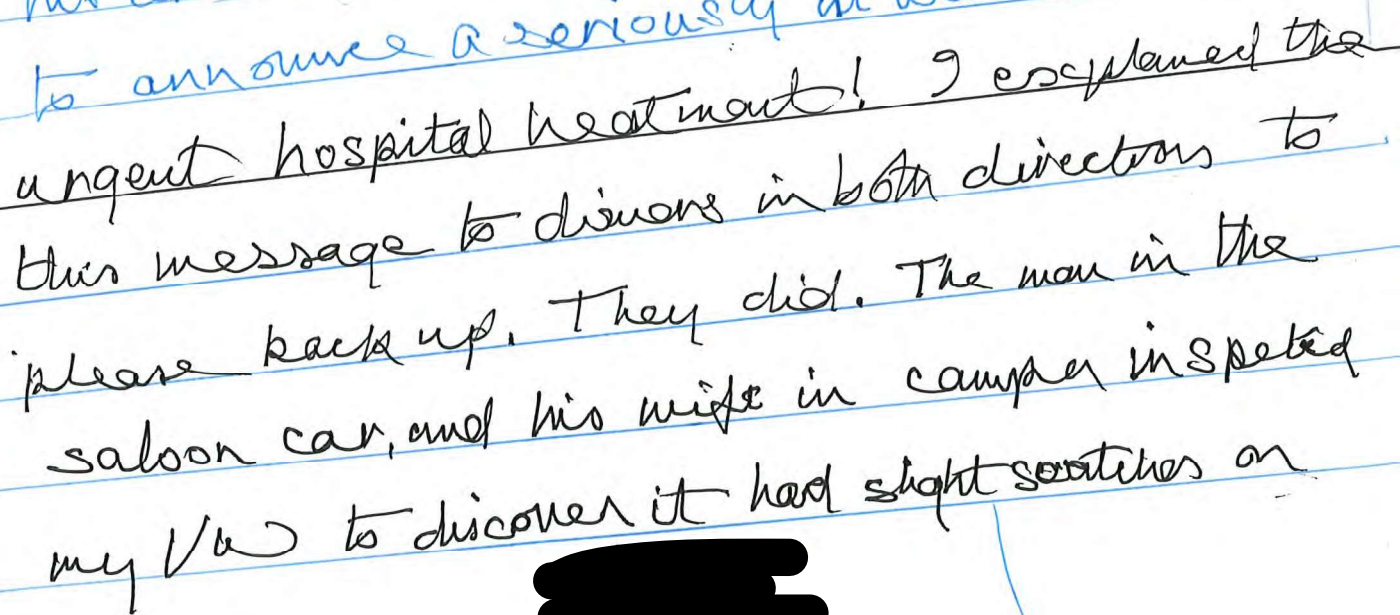 to announce a seriously
urgent hospital treatment! I explained the
this message to drivers in both directions to
please back up. They did. The man in the
saloon car, and his wife in camper inspeted
my VW to discover it had slight scratches on